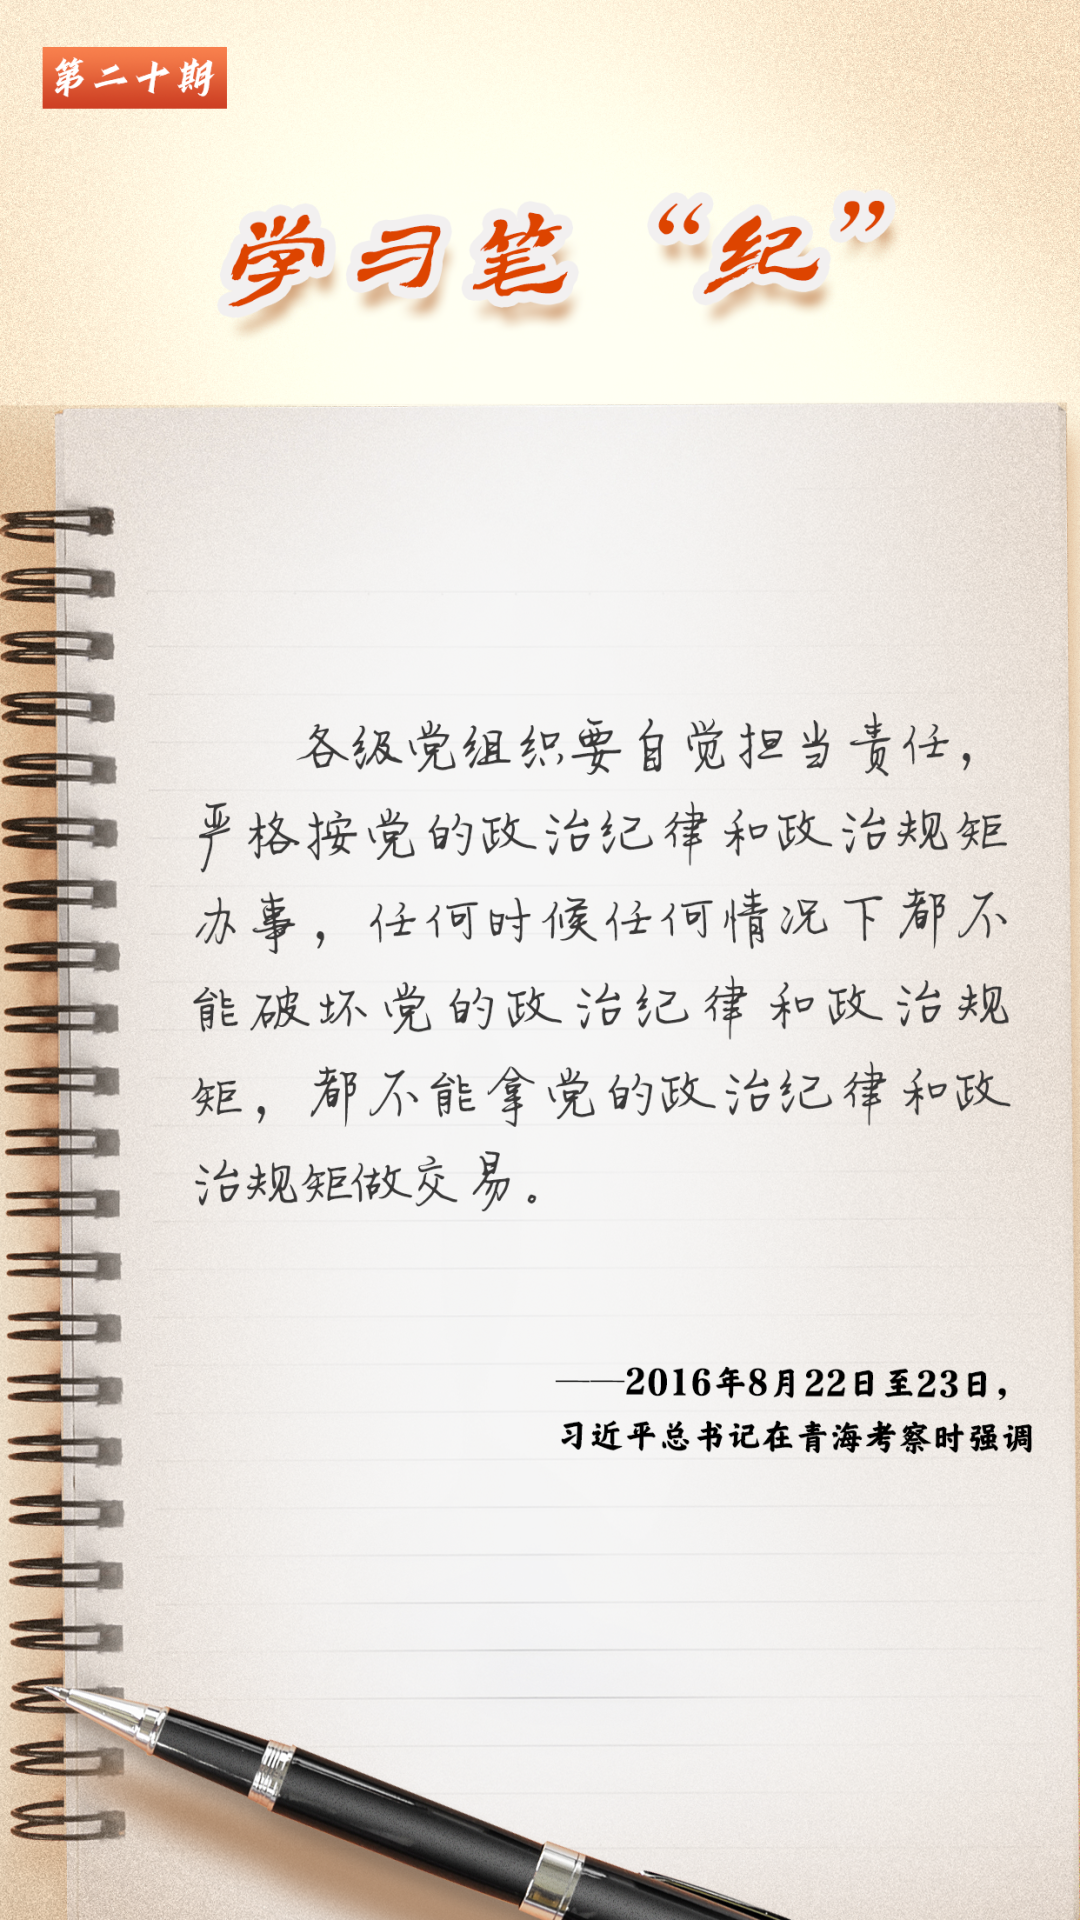 第二十期
学习笔“纪”
各级党组织要自觉担当责任，
严格按党的政治纪律和政治规矩
办事，任何时候任何情况下都不
能破坏党的政治纪律和政治规
矩，都不能拿党的政治纪律和政
治规矩做交易。
——2016年8月22日至23日，
习近平总书记在青海考察时强调